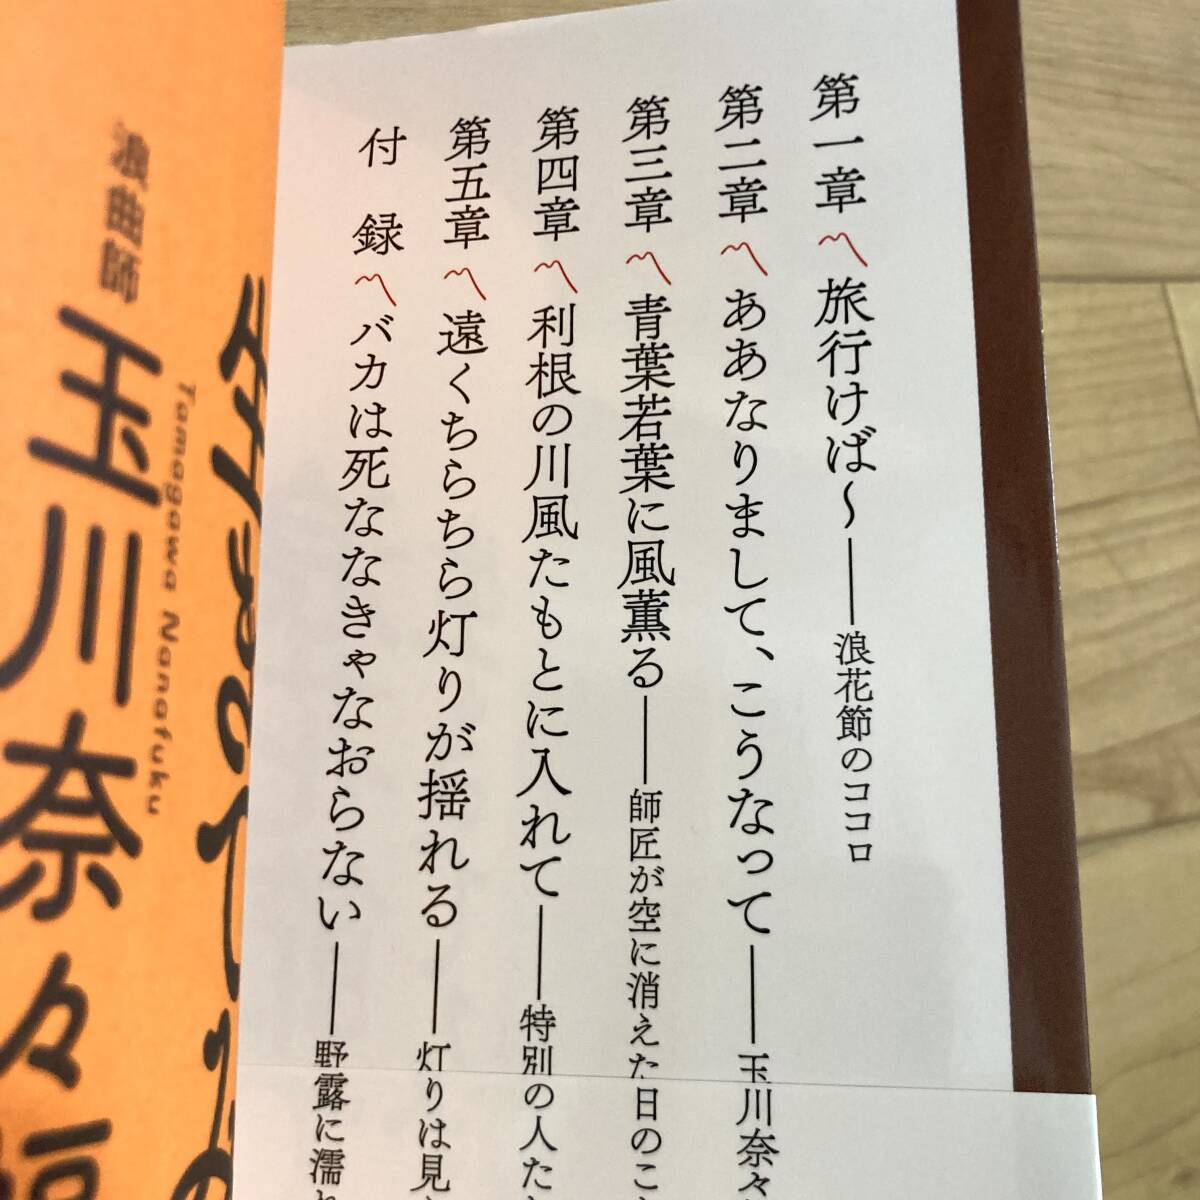 第一章 〽 旅行けば〜――浪花節のココロ
第二章 〽 ああなりまして、こうなって――玉川奈々
第三章 〽 青葉若葉に風薫る――師匠が空に消えた日のこ
第四章 〽 利根の川風たもとに入れて――特別の人た
第五章 〽 遠くちらちら灯りが揺れる――灯りは見
付録 〽 バカは死ななきゃなおらない――野露に濡
浪曲師
玉川奈々福
Tamagawa Nanafuku